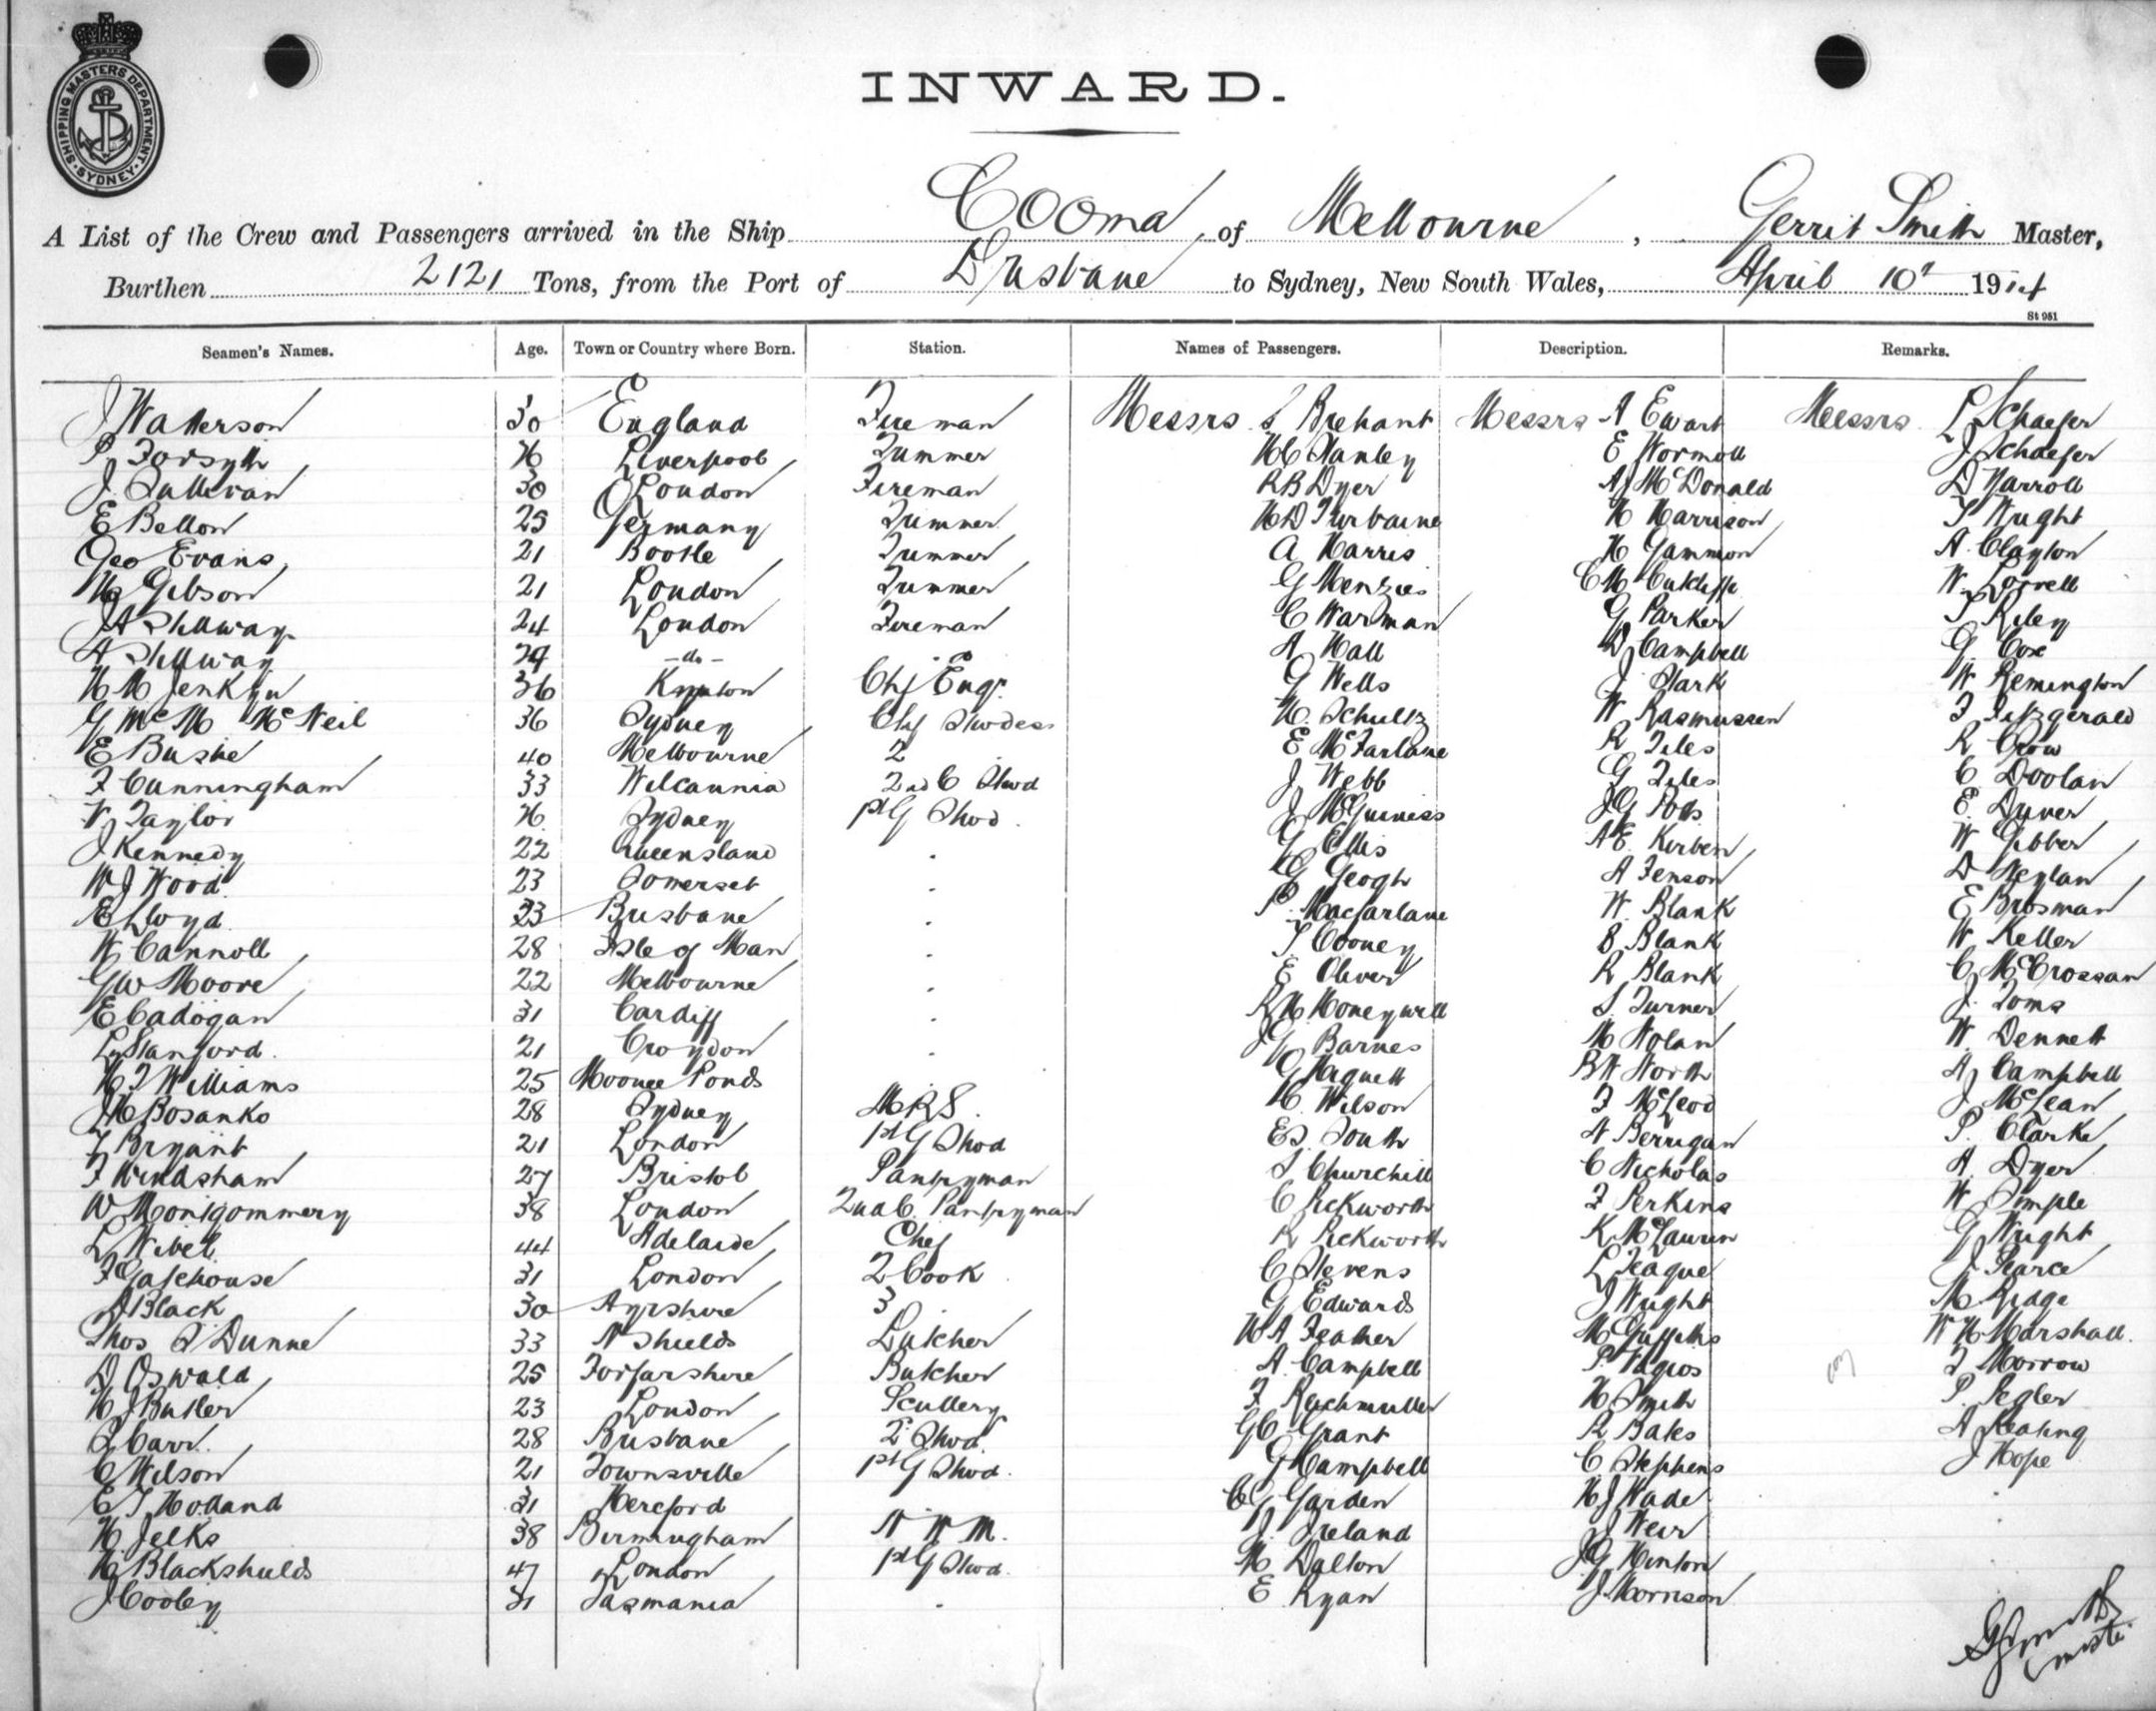 SHIPPING MASTERS DEPARTMENT · SYDNEY ·
INWARD.
A List of the Crew and Passengers arrived in the Ship Cooma, of Melbourne, Gerrit Smith Master,
Burthen 2121 Tons, from the Port of Brisbane to Sydney, New South Wales, April 10th 1914
St 951
Seamen's Names. Age. Town or Country where Born. Station. Names of Passengers. Description. Remarks.
J Watterson 30 England Fireman Messrs S Brehant Messrs A Ewart Messrs L Schaefer
P Forsyth Liverpool Trimmer HC Stanley E Wormoll J Schaefer
J. Sullivan 30 London Fireman RB Dyer AJ McDonald D Yarroll
E Bellon 25 Germany Trimmer HD Turbaine H Harrison T Wright
Geo Evans 21 Bootle Trimmer A Harris H Gammon A Clayton
H Gibson 21 London Trimmer G Menzies CM Cutcliffe W. Lovell
24 London Fireman C Warman G Parker T Riley
29 -do- A Hall D Campbell G Cox
H M Jenkyn 36 Kyneton Chf Engr. G Wells J Stark W Remington
G McM McNeil 36 Sydney Chf Stwdess H. Schultz W Rasmussen F Fitzgerald
E Bushe 40 Melbourne 2 E McFarlane R Tiles R Crow
F Cunningham 33 Wilcannia 2nd C Stwd J Webb G Tiles C Doolan
W Taylor Sydney Stwd. J McGuiness JG Potts E. Dwer
J Kennedy 22 Queensland G Ellis AE Kirben W Gibber
W J Wood 23 Somerset G Geogh A Fenson D Neylan
E Lloyd 23 Brisbane P. Macfarlane W. Blank E Brosman
W Cannoll 28 Isle of Man T Cooney B Blank W Keller
GW Moore 22 Melbourne E Oliver R Blank C McCrossan
E Cadogan 31 Cardiff RH Honeywell S Turner J. Toms
L Stanford 21 Croydon JG Barnes M Nolan W Dennett
H T Williams 25 Moonee Ponds G Magnett BW North AJ Campbell
JM Bosanko 28 Sydney MRS. C. Wilson F McLeod J McLean
F Bryant 21 London Stwd ES South W Berrigan P. Clarke
F Windsham 27 Bristol Pantryman S Churchill C Nicholas A. Dyer
W Montgommery 38 London 2nd C. Pantryman C Pickworth F Perkins W Simple
L Wibel 44 Adelaide Chef R Pickworth K McLaurin G Wright
F Gatehouse 31 London 2 Cook C Stevens L Teague J Pearce
A Black 30 Ayrshire 3 G Edwards J Wright M Ridge
Thos S Dunne 33 N Shields Butcher WA Feather M Griffiths W H Marshall.
D Oswald 25 Forfarshire Butcher A. Campbell P. Vagios T Morrow
H J Butler 23 London Scullery F Reichmuller H Smith P. Pegler
J Carr. 28 Brisbane 2 Stwd. GC Grant R Bates A Keating
C Wilson 21 Townsville Stwd. G Campbell C Stephens J Hope
E T Holland 31 Hereford CG Garden H J Wade
H. Jelks 38 Birmingham N W M. J. Ireland J Weir
H. Blackshields 47 London Stwd. M Dalton JG Hinton
J Cooley 31 Tasmania E Ryan J Morrison
G Smith
Master